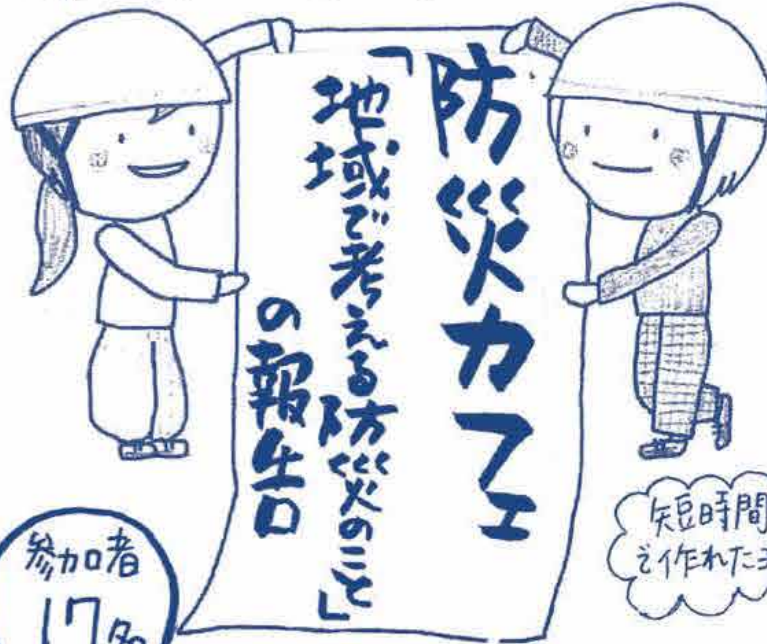 防災カフェ
「地域で考える防災のこと」
の報告
参加者
17名
短時間
で作れたヨ